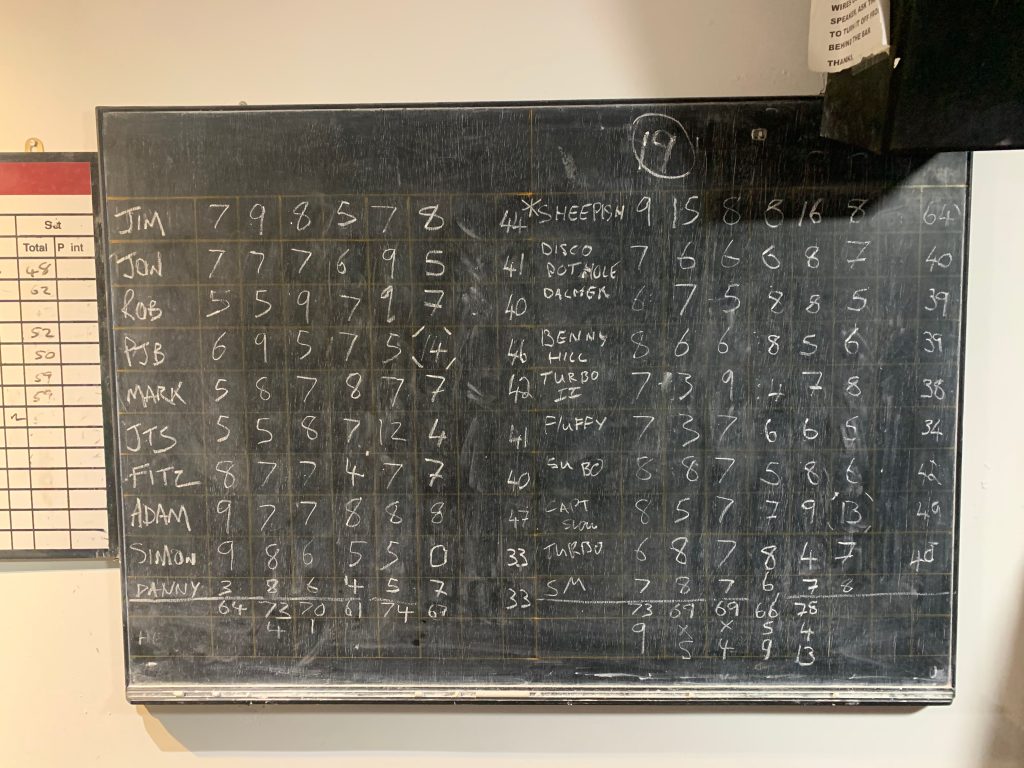 WIRES
SPEAKER, ASK TH
TO TURN IT OFF FROM
BEHIND THE BAR
THANKS
19
JIM 7 9 8 5 7 8 44
JON 7 7 7 6 9 5 41
ROB 5 5 9 7 9 7 40
PJB 6 9 5 7 5 14 46
MARK 5 8 7 8 7 7 42
JTS 5 5 8 7 12 4 41
FITZ 8 7 7 4 7 7 40
ADAM 9 7 7 8 8 8 47
SIMON 9 8 6 5 5 0 33
DANNY 3 8 6 4 5 7 33
64 73 70 61 74 67
4 1
*SHEEPISH 9 15 8 8 16 8 64
DISCO
POTHOLE 7 6 6 6 8 7 40
DALMER 6 7 5 8 8 5 39
BENNY
HILL 8 6 6 8 5 6 39
TURBO
II 7 3 9 4 7 8 38
FLUFFY 7 3 7 6 6 5 34
SUBO 8 8 7 5 8 6 42
CAPT
SLOW 8 5 7 7 9 13 49
TURBO 6 8 7 8 4 7 40
SM 7 8 7 6 7 8
73 69 69 66 78
9 x x 5 4
5 4 9 13
Set
Total P int
48
62
52
50
59
59